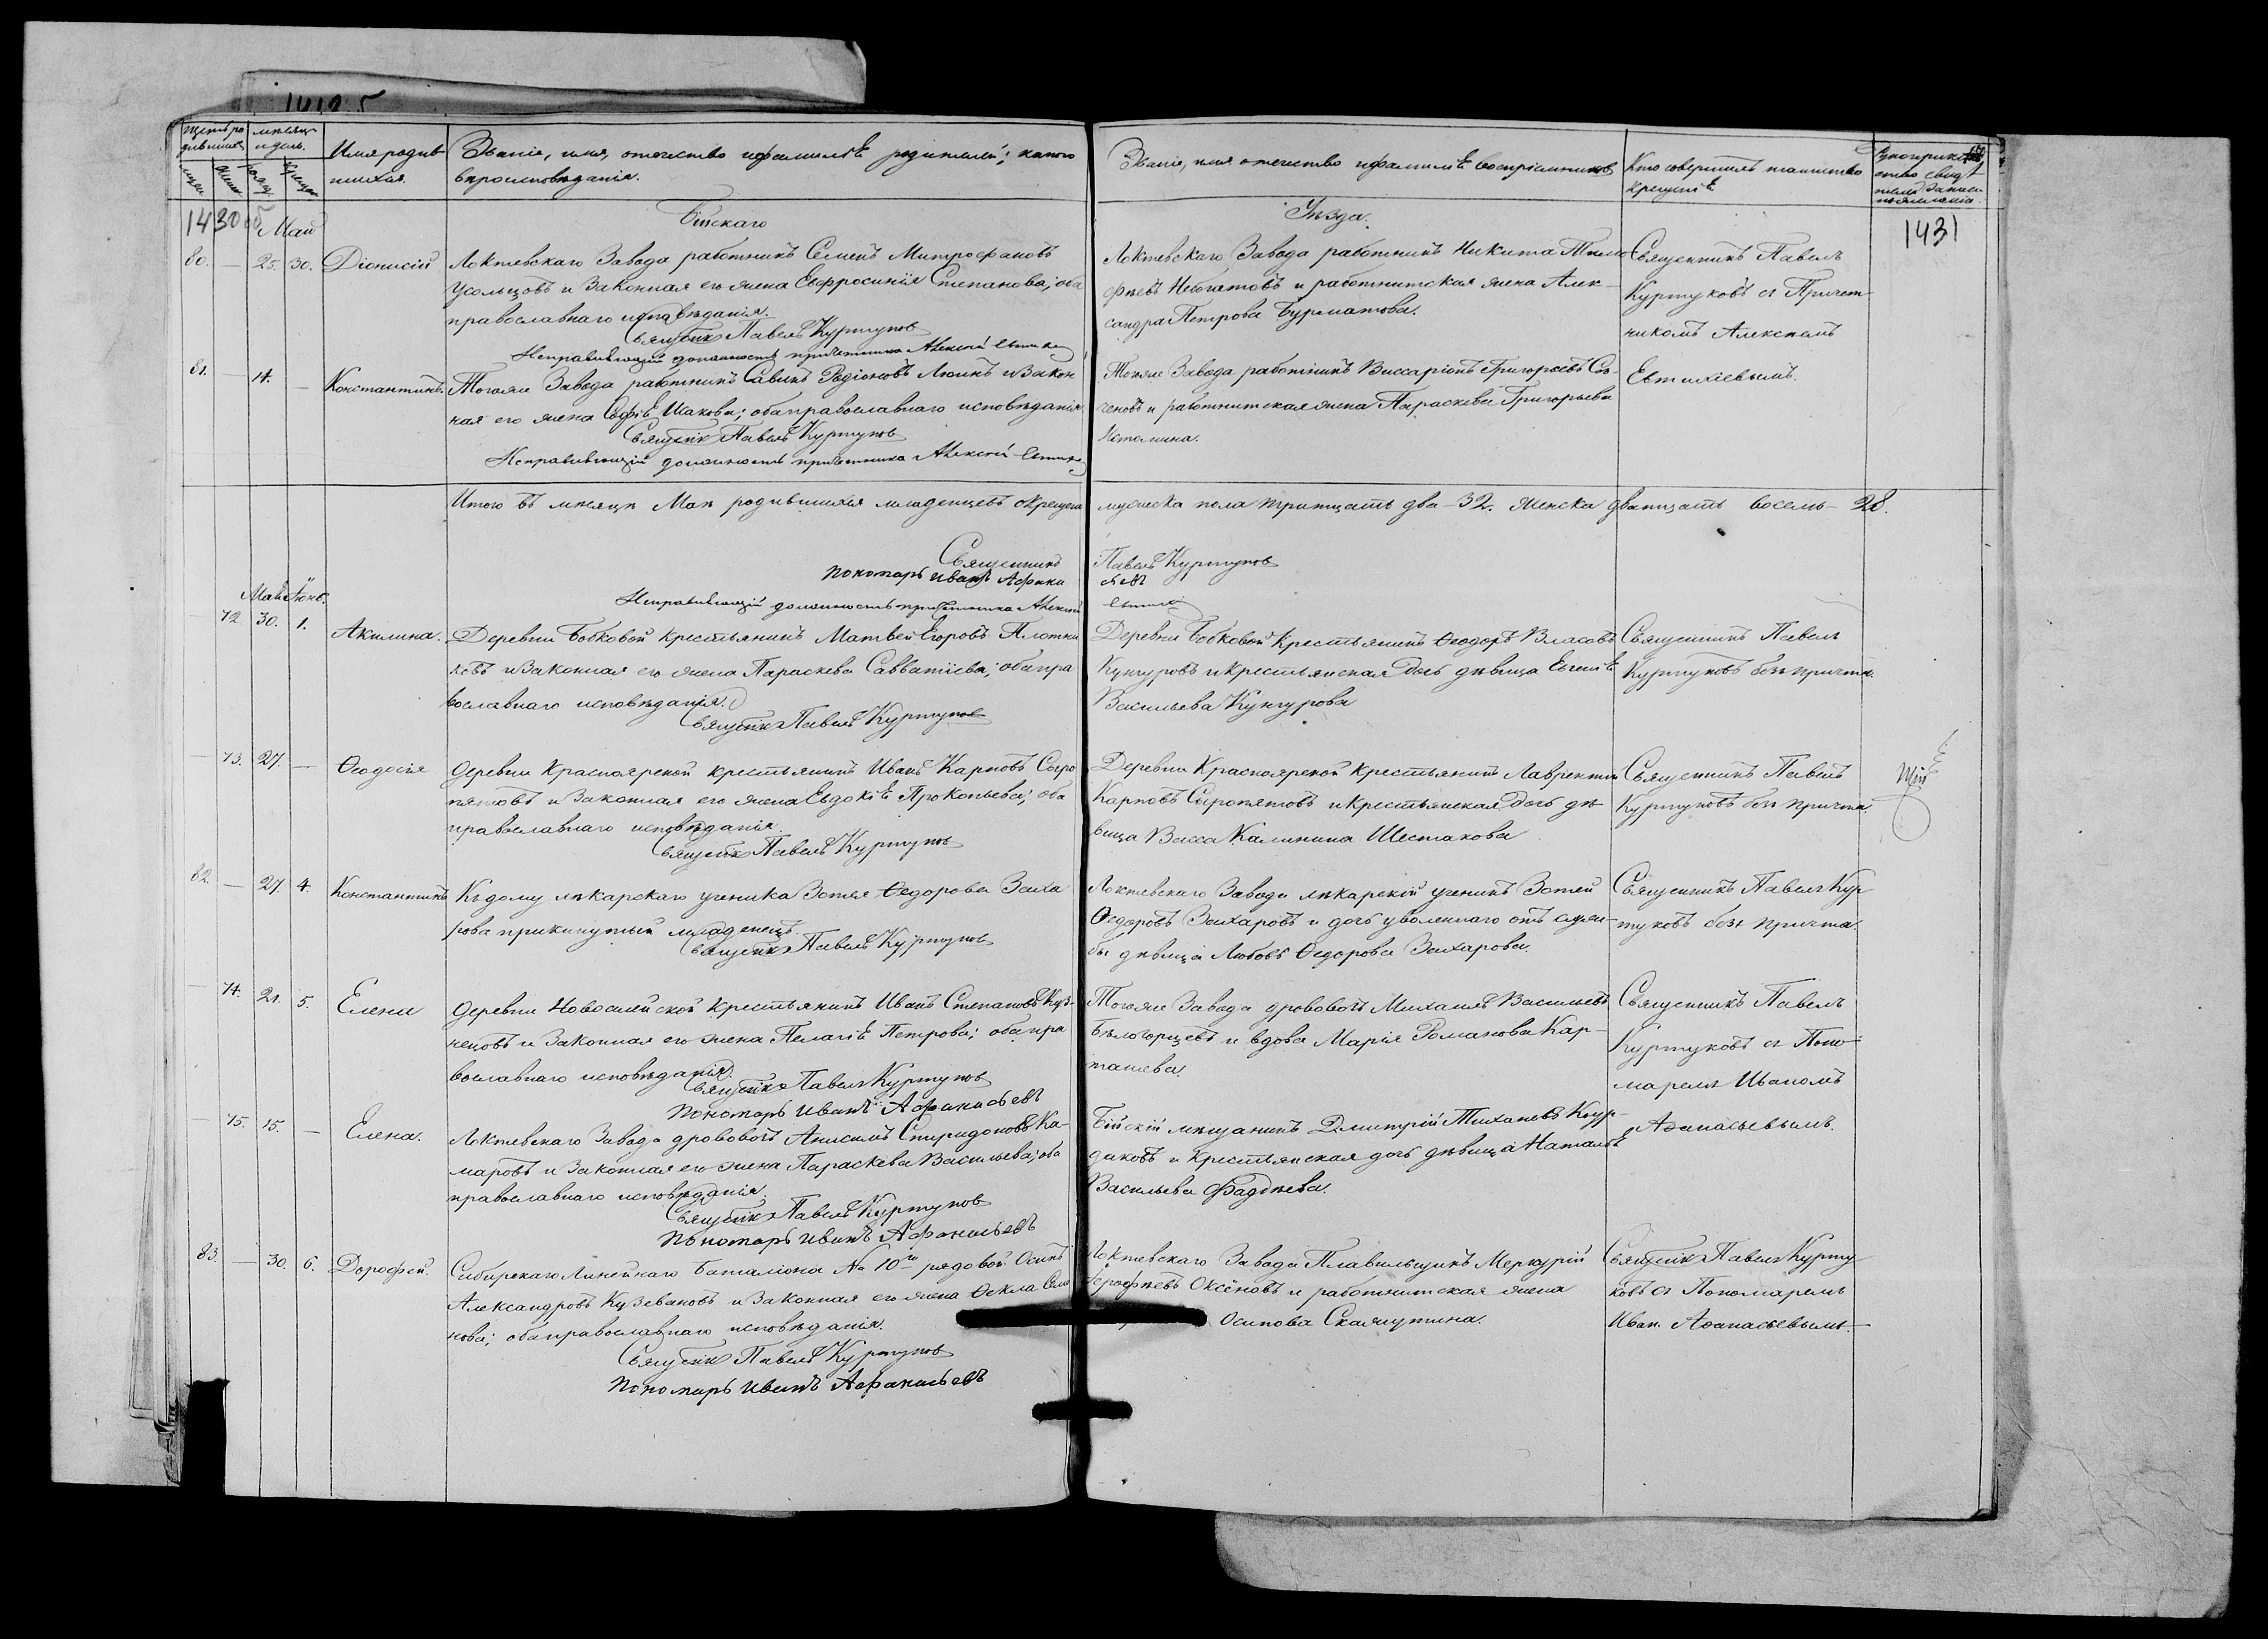 Имя родив-
шихся.
Званіе, имя, отечество и фамиліѣ родителей; какого
вѣроисповѣданія.
Званіе, имя отечество и фамиліѣ воспріемниковъ
Кто совершилъ таинство
крещеніѣ
1430
Май
Бійскаго
Уѣзда.
1431
80. — 25. 30. Діонисій
Локтевскаго Завода работникъ Семенъ Митрофановъ
Усольцовъ и Законная его жена Евфросинія Степанова; оба
православнаго исповѣданія.
Священникъ Павелъ Куртуковъ
Исправляющій должность причетника Алексей
Локтевскаго Завода работникъ Никита Тимо
фѣевъ Небогатовъ и работнитская жена Алек-
сандра Петрова Бурматова.
Священникъ Павелъ
Куртуковъ съ Причет-
никомъ Алексѣемъ
Евтихіевымъ.
81. — 14. — Константинъ.
Тогоже Завода работникъ Савинъ Родіоновъ и Закон
ная его жена Софіѣ Исакова; оба православнаго исповѣданія.
Священникъ Павелъ Куртуковъ
Исправляющій должность причетника Алексей
Тогоже Завода работникъ Виссаріонъ Григорьевъ
и работнитская жена Параскева Григорьева
Истомина.
Итого въ мѣсяцѣ Маѣ родившихся младенцевъ окрещено
мужеска пола тритцать два - 32. женска дватцать восемь - 28.
Священникъ
Пономарь Иванъ Афана
Исправляющій должность причетника Алексей
Павелъ Куртуковъ
сьевъ
Май Іюнь.
72. 30. 1. Акилина.
Деревни Бобковой крестьянинъ Матвей Егоровъ Плотни
ковъ и Законная его жена Параскева Савватіева; оба пра
вославнаго исповѣданія.
Священникъ Павелъ Куртуковъ
Деревни Бобковой крестьянинъ Ѳеодоръ Власовъ
Кунгуровъ и крестьянская дочь дѣвица Евгеніѣ
Васильева Кунгурова
Священникъ Павелъ
Куртуковъ безъ причта.
— 73. 27. — Ѳеодосія
Деревни Красноярской крестьянинъ Иванъ Карповъ Сыро
пятовъ и Законная его жена Евдокіѣ Прокопьева; оба
православнаго исповѣданія.
Священникъ Павелъ Куртуковъ
Деревни Красноярской крестьянинъ Лаврентій
Карповъ Сыропятовъ и крестьянская дочь дѣ-
вица Васса Калинина Шестакова
Священникъ Павелъ
Куртуковъ безъ причта.
82. — 27. 4. Константинъ
Къ дому лѣкарскаго ученика Зотея Ѳедорова Заха
рова прикинутый младенецъ.
Священникъ Павелъ Куртуковъ
Локтевскаго Завода лѣкарскій ученикъ Зотей
Ѳедоровъ Захаровъ и дочь уволеннаго отъ служ-
бы дѣвица Любовь Ѳедорова Захарова.
Священникъ Павелъ Кур
туковъ безъ причта.
74. 21. 5. Елена
Деревни крестьянинъ Иванъ Степановъ Куз-
нецовъ и Законная его жена Пелагіѣ Петрова; оба пра
вославнаго исповѣданія.
Священникъ Павелъ Куртуковъ
Пономарь Иванъ Афанасьевъ
Тогоже Завода дрововозъ Михаилъ Васильевъ
Бѣлогорцевъ и вдова Марія Романова Кар-
ташева.
Священникъ Павелъ
Куртуковъ съ Поно-
маремъ Иваномъ
Аѳанасьевымъ.
— 75. 15. — Елена.
Локтевскаго Завода дрововозъ Анисимъ Спиридоновъ Ка-
маровъ и Законная его жена Параскева Васильева; оба
православнаго исповѣданія.
Священникъ Павелъ Куртуковъ
Пономарь Иванъ Афанасьевъ
Бійскій мѣщанинъ Димитрій Тихановъ
и крестьянская дочь дѣвица Наталіѣ
Васильева Фадѣева.
83. — 30. 6. Дорофей.
Сибирскаго Линейнаго Баталіона № 10го рядовой Осипъ
Александровъ Кузевановъ и Законная его жена Ѳекла Семе
нова; оба православнаго исповѣданія.
Священникъ Павелъ Куртуковъ
Пономарь Иванъ Афанасьевъ
Локтевскаго Завода Плавильщикъ Меркурій
Оксёновъ и работнитская жена
Осипова Скажутина.
Священникъ Павелъ Курту
ковъ съ Пономаремъ
Иван. Аѳанасьевымъ.